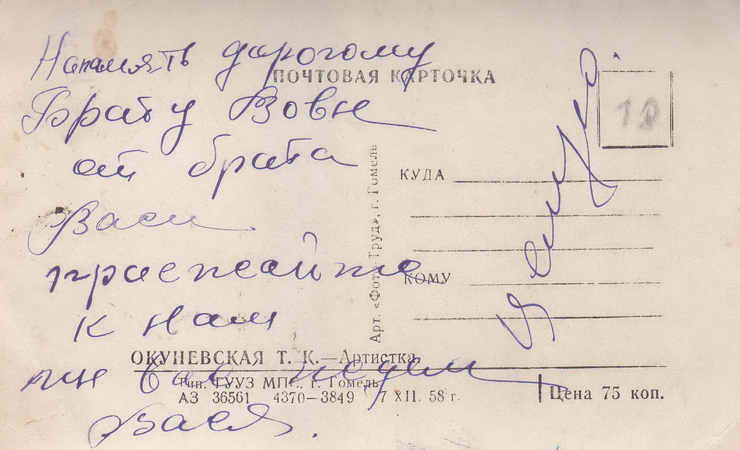 Напамять дорогому
ПОЧТОВАЯ КАРТОЧКА
Брату Вовы
от брата
Васи
приежайте
к нам
мы вас ждем
Вася.
целую.
18
КУДА
КОМУ
Арт. «Фото Труд», г. Гомель
ОКУНЕВСКАЯ Т. К.—Артистка
Тип. ГУУЗ МПС, г. Гомель
АЗ 36561 4370-3849 7 XII. 58 г.
Цена 75 коп.